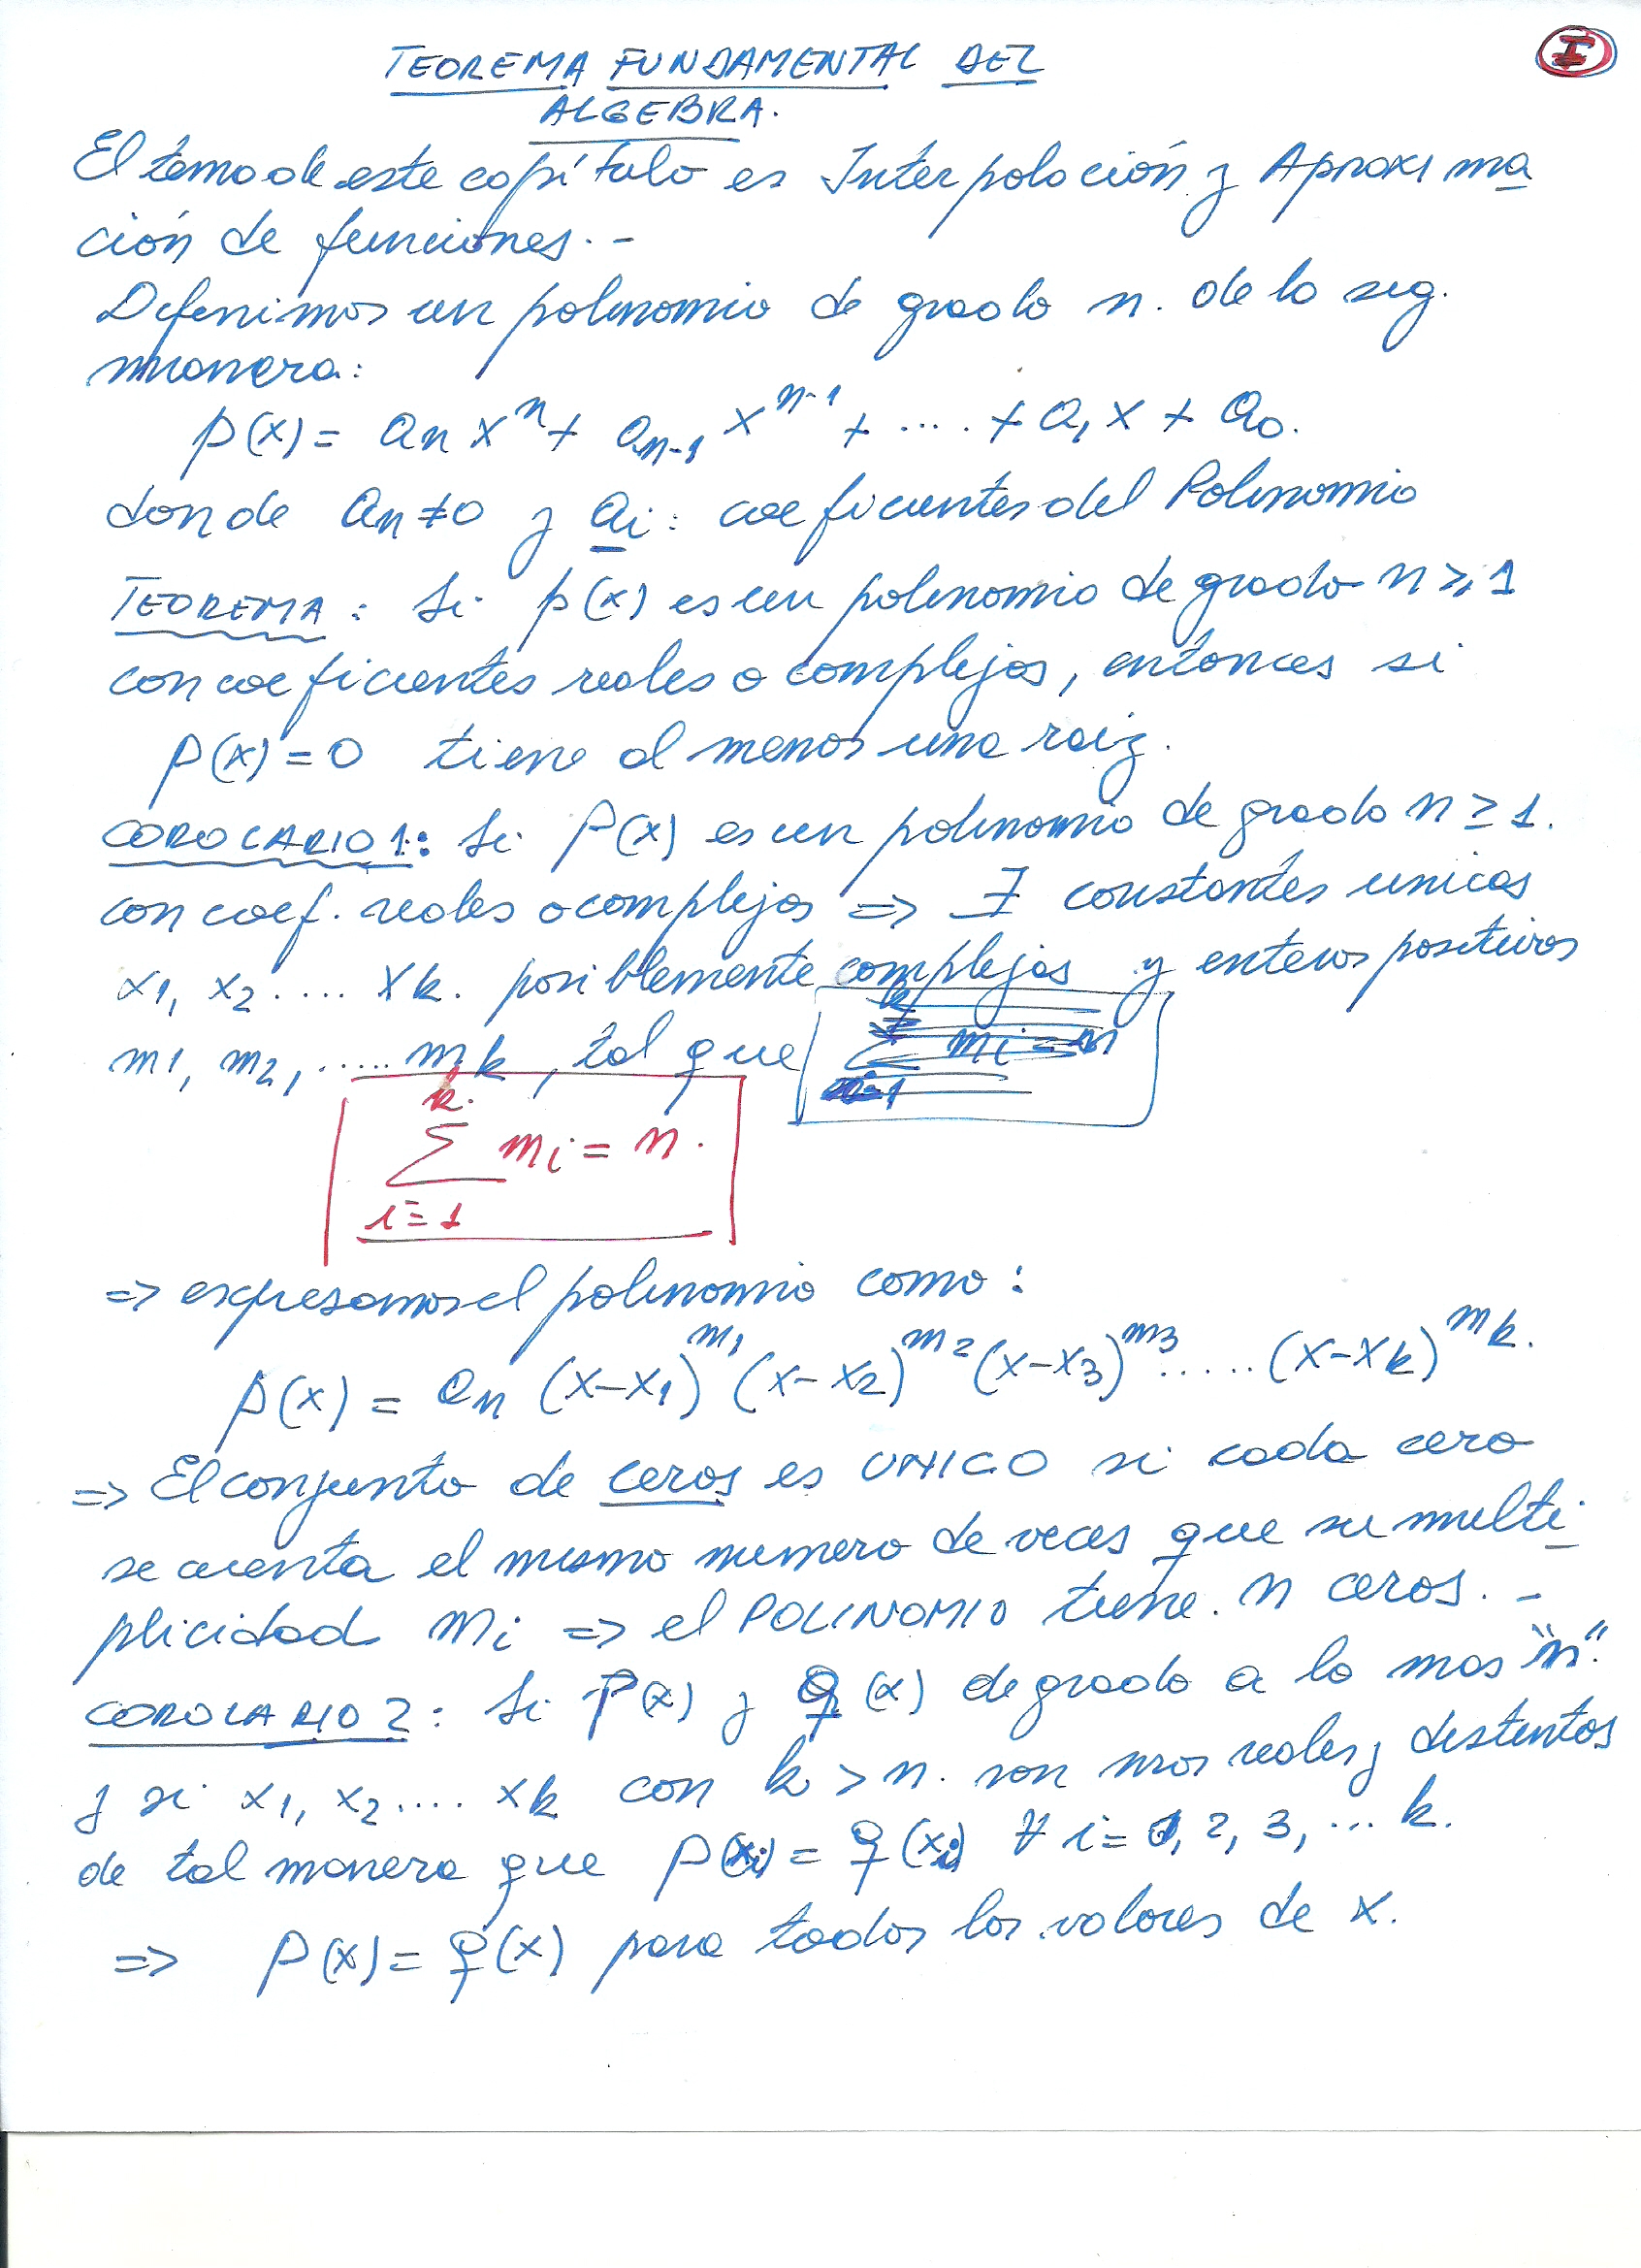 TEOREMA FUNDAMENTAL DEL
I
ALGEBRA.
El tema de este capítulo es Interpolación y Aproxima
ción de funciones.-
Definimos un polinomio de grado n. de la sig.
manera:
p(x) = an x^n + an-1 x^n-1 + .... + a1 x + a0.
donde an≠0 y ai: coeficientes del Polinomio
TEOREMA: Si p(x) es un polinomio de grado n ≥ 1
con coeficientes reales o complejos, entonces si
p(x)=0 tiene al menos una raiz.
COROLARIO 1: Si P(x) es un polinomio de grado n ≥ 1.
con coef. reales o complejos => ∃ constantes unicas
x1, x2 .... xk. posiblemente complejas y enteros positivos
m1, m2, ..... mk, tal que
k.
∑ mi = n.
i=1
=> expresamos el polinomio como:
p(x) = an (x-x1)^m1 (x-x2)^m2 (x-x3)^m3 ..... (x-xk)^mk.
=> El conjunto de ceros es UNICO si cada cero
se cuenta el mismo numero de veces que su multi-
plicidad mi => el POLINOMIO tiene n ceros.-
COROLARIO 2: Si P(x) y Q(x) de grado a lo mas "n".
y si x1, x2 .... xk con k > n. son nros reales y distintos
de tal manera que P(xi) = Q(xi) ∀ i = 1, 2, 3, ... k.
=> P(x) = Q(x) para todos los valores de x.